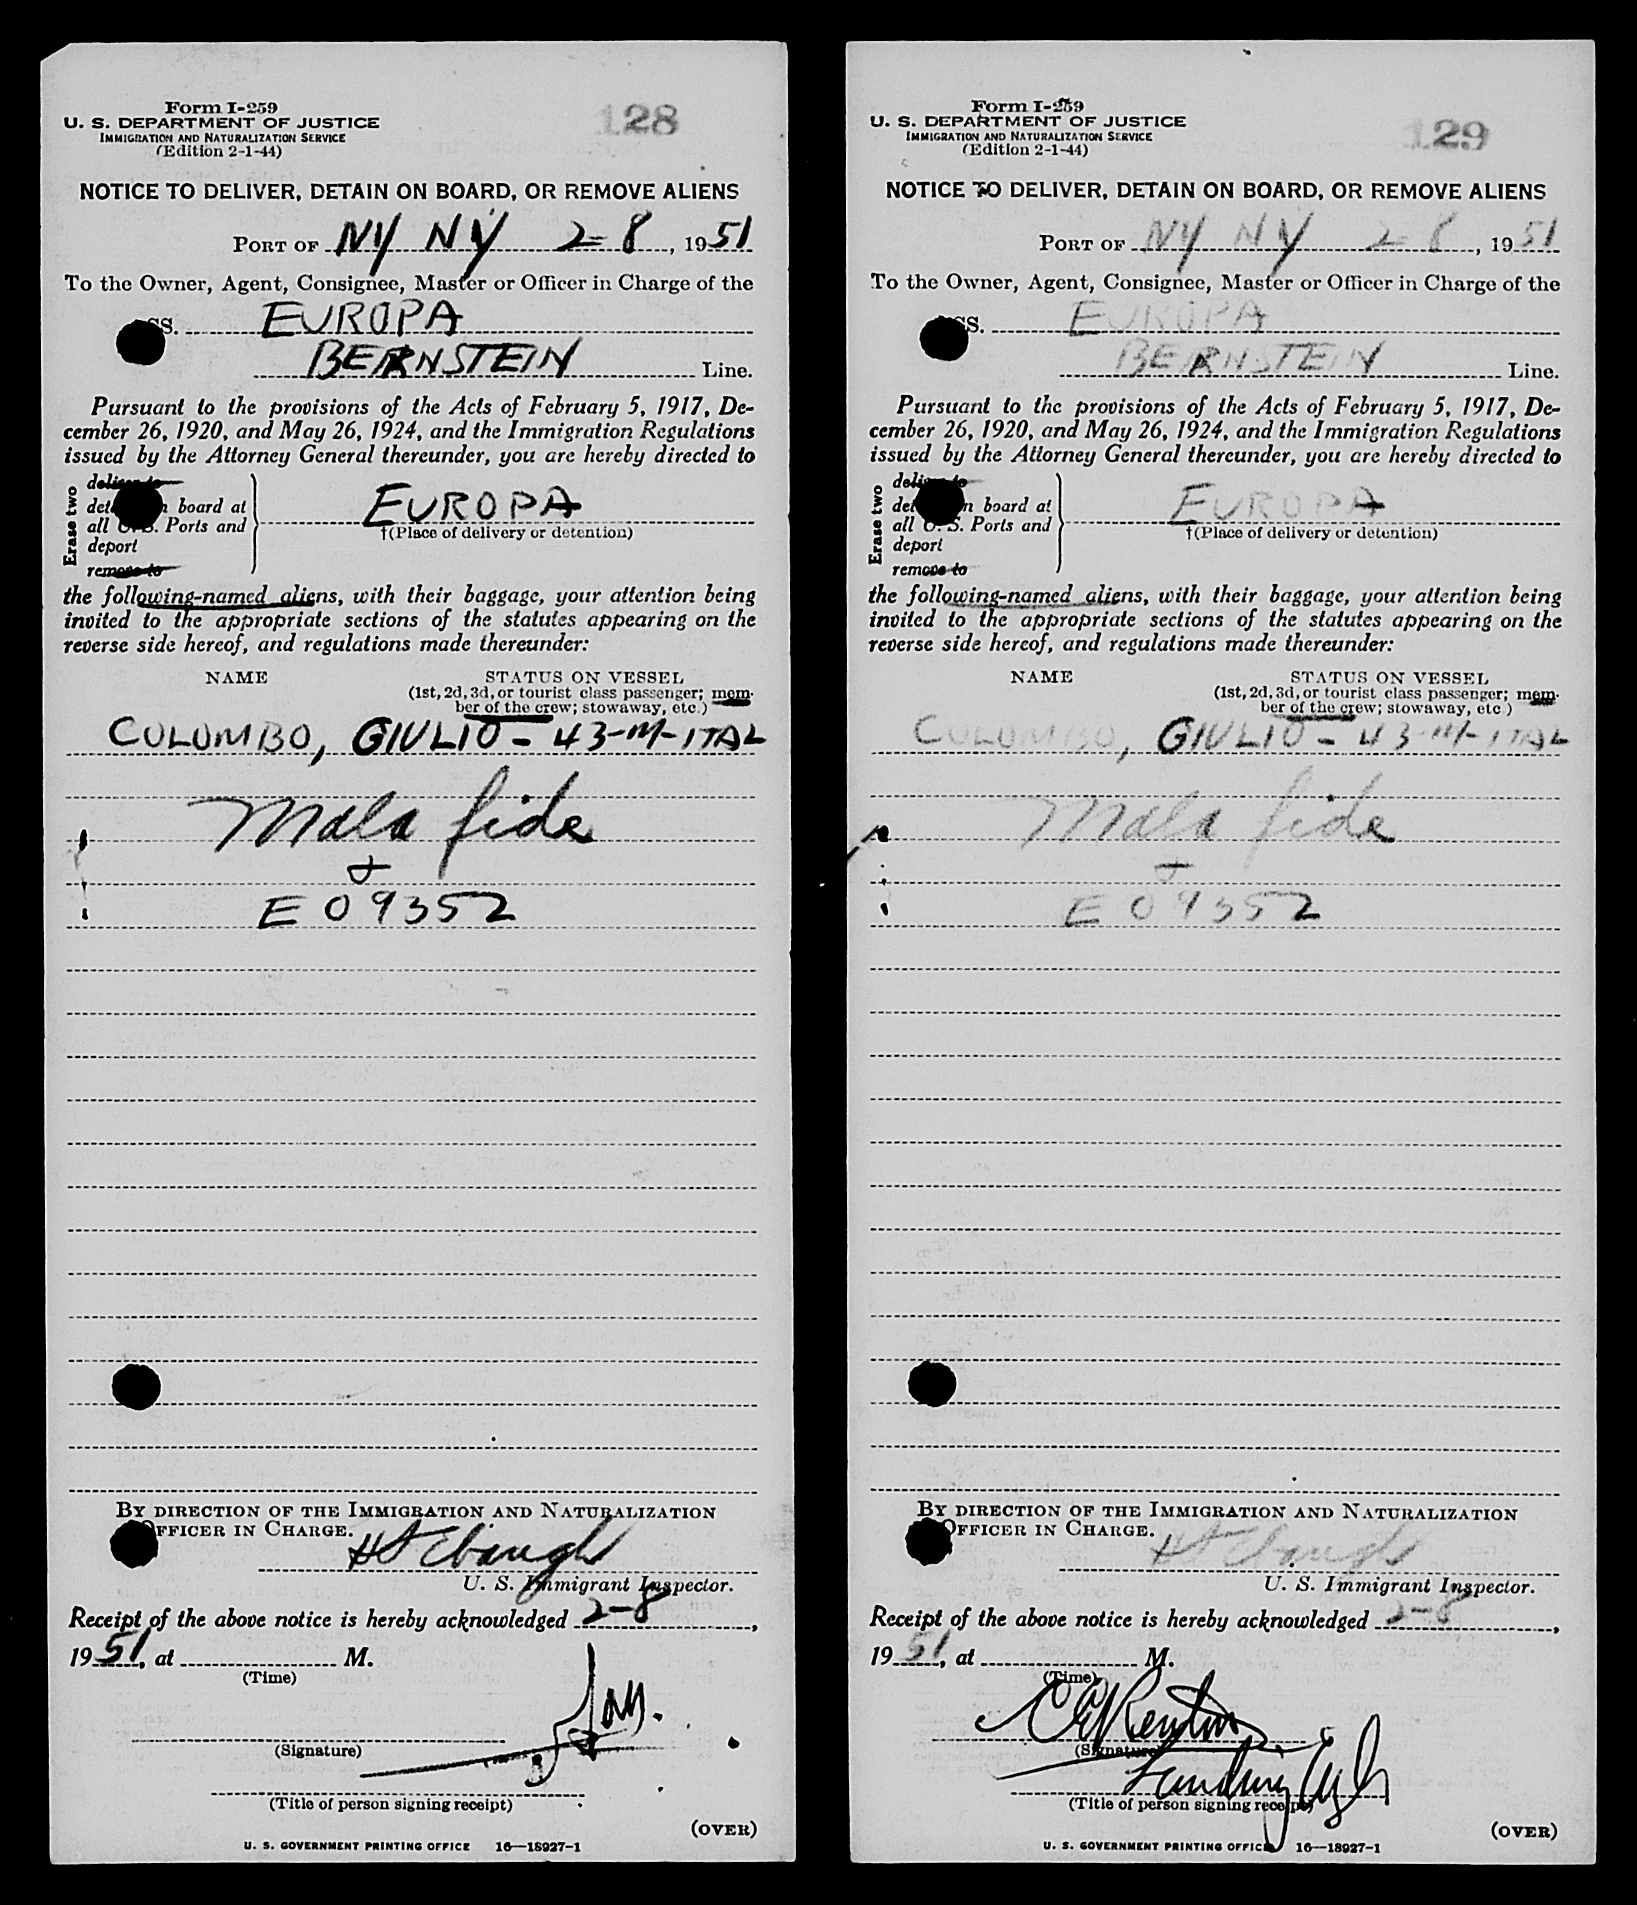 Form I-259
U. S. DEPARTMENT OF JUSTICE
IMMIGRATION AND NATURALIZATION SERVICE
(Edition 2-1-44)
128
NOTICE TO DELIVER, DETAIN ON BOARD, OR REMOVE ALIENS
PORT OF NY NY 2-8, 1951
To the Owner, Agent, Consignee, Master or Officer in Charge of the
SS. EUROPA
BERNSTEIN Line.
Pursuant to the provisions of the Acts of February 5, 1917, De-
cember 26, 1920, and May 26, 1924, and the Immigration Regulations
issued by the Attorney General thereunder, you are hereby directed to
Erase two
deliver to
board at
all U. S. Ports and
deport
remove to
EUROPA
†(Place of delivery or detention)
the following-named aliens, with their baggage, your attention being
invited to the appropriate sections of the statutes appearing on the
reverse side hereof, and regulations made thereunder:
NAME STATUS ON VESSEL
(1st, 2d, 3d, or tourist class passenger; mem-
ber of the crew; stowaway, etc.)
COLOMBO, GIULIO - 43-M-ITAL
Mala fide
&
E O 9352
BY DIRECTION OF THE IMMIGRATION AND NATURALIZATION
OFFICER IN CHARGE.
U. S. Immigrant Inspector.
Receipt of the above notice is hereby acknowledged 2-8,
1951, at M.
(Time)
(Signature)
(Title of person signing receipt)
(OVER)
U. S. GOVERNMENT PRINTING OFFICE 16—18927-1
Form I-259
U. S. DEPARTMENT OF JUSTICE
IMMIGRATION AND NATURALIZATION SERVICE
(Edition 2-1-44)
129
NOTICE TO DELIVER, DETAIN ON BOARD, OR REMOVE ALIENS
PORT OF NY NY 2-8, 1951
To the Owner, Agent, Consignee, Master or Officer in Charge of the
SS. EUROPA
BERNSTEIN Line.
Pursuant to the provisions of the Acts of February 5, 1917, De-
cember 26, 1920, and May 26, 1924, and the Immigration Regulations
issued by the Attorney General thereunder, you are hereby directed to
Erase two
deliver to
board at
all U. S. Ports and
deport
remove to
EUROPA
†(Place of delivery or detention)
the following-named aliens, with their baggage, your attention being
invited to the appropriate sections of the statutes appearing on the
reverse side hereof, and regulations made thereunder:
NAME STATUS ON VESSEL
(1st, 2d, 3d, or tourist class passenger; mem-
ber of the crew; stowaway, etc.)
COLOMBO, GIULIO - 43-M-ITAL
Mala fide
&
E O 9352
BY DIRECTION OF THE IMMIGRATION AND NATURALIZATION
OFFICER IN CHARGE.
U. S. Immigrant Inspector.
Receipt of the above notice is hereby acknowledged 2-8,
1951, at M.
(Time)
(Signature)
(Title of person signing receipt)
(OVER)
U. S. GOVERNMENT PRINTING OFFICE 16—18927-1